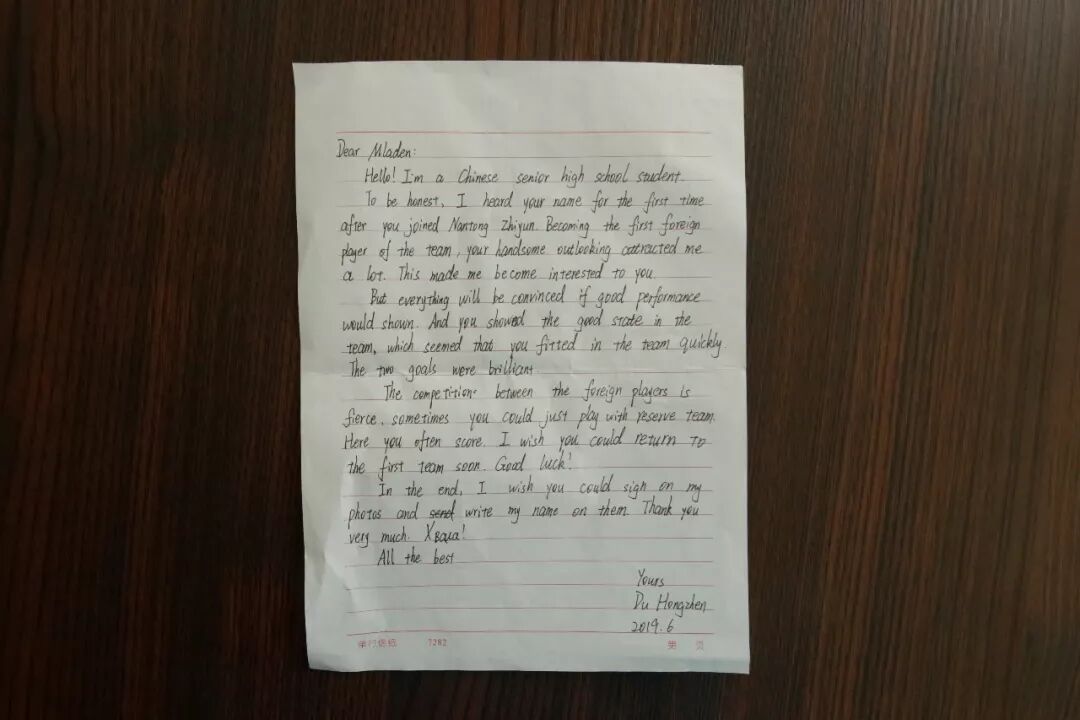 Dear Mladen:
Hello! I'm a Chinese senior high school student.
To be honest, I heard your name for the first time
after you joined Nantong Zhiyun. Becoming the first foreign
player of the team, your handsome outlooking attracted me
a lot. This made me become interested to you.
But everything will be convinced if good performance
would shown. And you showed the good state in the
team, which seemed that you fitted in the team quickly.
The two goals were brilliant.
The competitions between the foreign players is
fierce, sometimes you could just play with reserve team.
Here you often score. I wish you could return to
the first team soon. Good luck!
In the end, I wish you could sign on my
photos and send write my name on them. Thank you
very much. Хвала!
All the best
Yours
Du Hongzhen
2019.6
单行信纸 7282 第 页